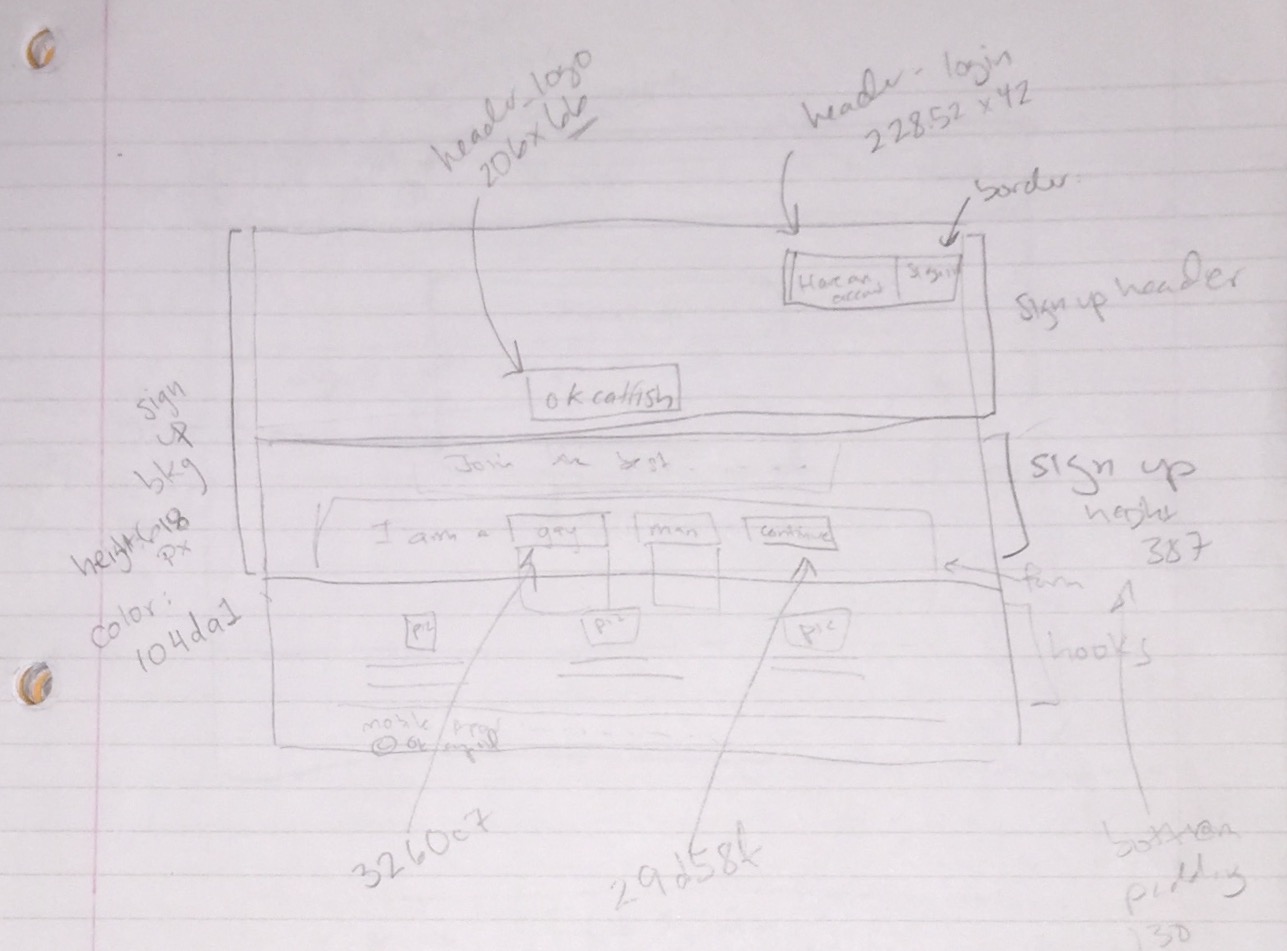 header_logo
206x66
header - login
228.52 x 42
border
Have an
Sign in
Sign up header
ok catfish
sign
up
bkg
height: 618
px
color:
104da1
Join the best . . . . .
sign up
height
387
I am a gay man continue
form
pic pic pic
hooks
mobile
© ok
3260c7
29d58f
bottom
padding
130